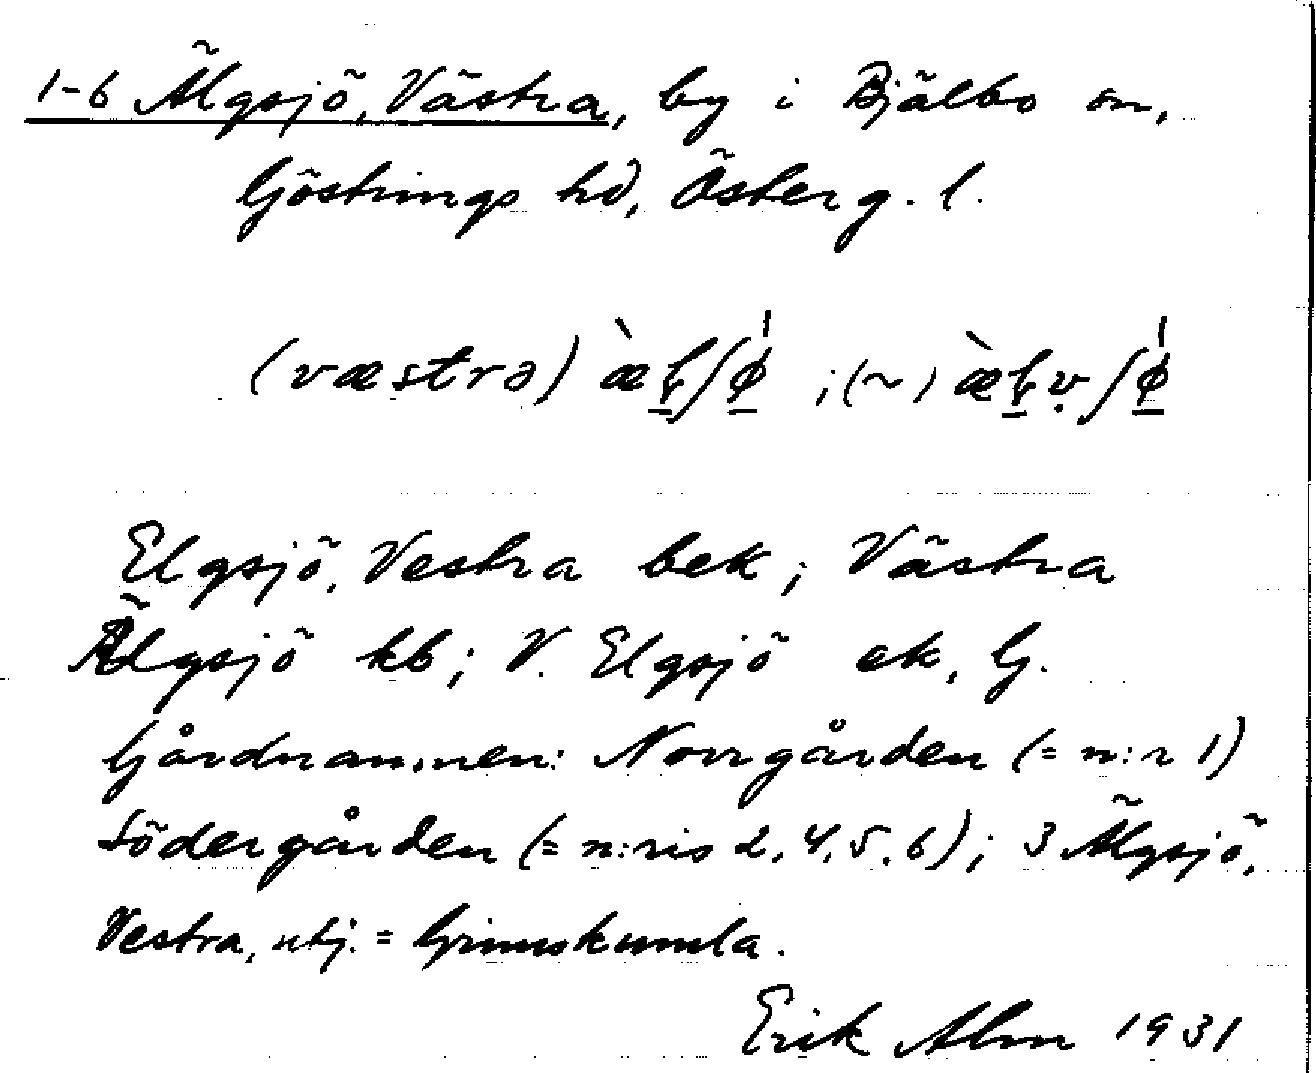 1-6 Älgsjö, Västra, by i Bjälbo sn,
Göstrings hd, Österg. l.
(væstrə)
Elgsjö, Vestra bek; Västra
Älgsjö kb; V. Elgsjö ek, G.
Gårdnamnen: Norrgården (= n:r 1)
Södergården (= n:ris 2, 4, 5, 6); 3 Älgsjö,
Vestra, utj. = Grimskumla.
Erik Alm 1931